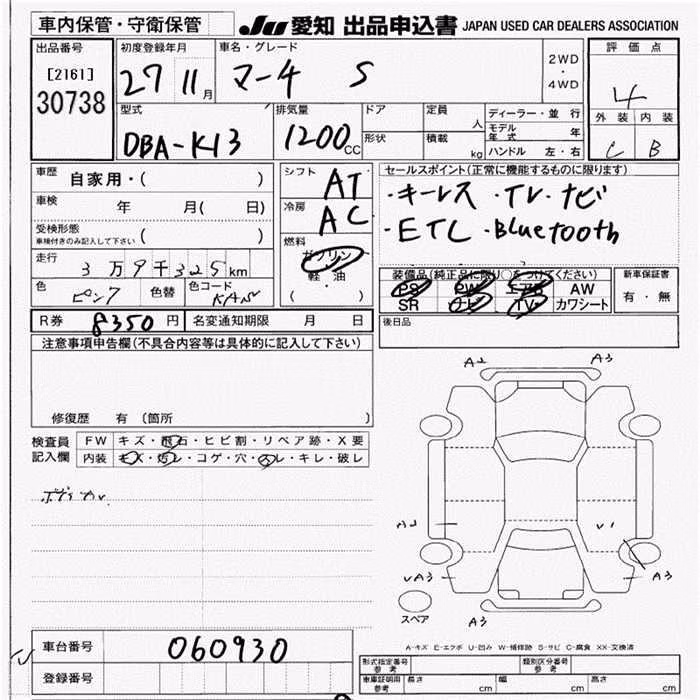 車内保管・守衛保管
JU 愛知 出品申込書 JAPAN USED CAR DEALERS ASSOCIATION
出品番号 初度登録年月 車名・グレード 2WD・4WD 評価点
[2161]
30738 27 11月 マーチ S 4
型式 排気量 ドア 定員 人 ディーラー・並行 外装 内装
DBA-K13 1200CC 形状 積載 kg モデル年式 年 C B
ハンドル 左・右
車歴 自家用・( ) シフト AT セールスポイント(正常に機能するものに限ります)
車検 年 月( 日) 冷房 AC ・キーレス ・TV・ナビ
受検形態 車検付きのみ記入して下さい ( ) ・ETC ・Bluetooth
走行 3万9千325km 燃料 ガソリン 軽・油 ( )
色 ピンク 色替 色コード
装備品(純正品に限り○をつけてください) 新車保証書
PS PW エアB AW 有・無
SR ナビ TV カワシート
R券 8350円 名変通知期限 月 日 後日品
注意事項申告欄(不具合内容等は具体的に記入して下さい)
修復歴 有 (箇所
検査員記入欄 FW キズ・飛石・ヒビ割・リペア跡・X要
内装 キズ・汚レ・コゲ・穴・スレ・キレ・破レ
A2 A3
A2 U1
UA3 A3
スペア A3
A-キズ E-エクボ U-凹み W-補修跡 S-サビ C-腐食 XX-交換済
車台番号 060930
登録番号
形式指定番号 参考 類別区分番号 参考
車庫証明用 参考 長さ cm 幅 cm 高さ cm